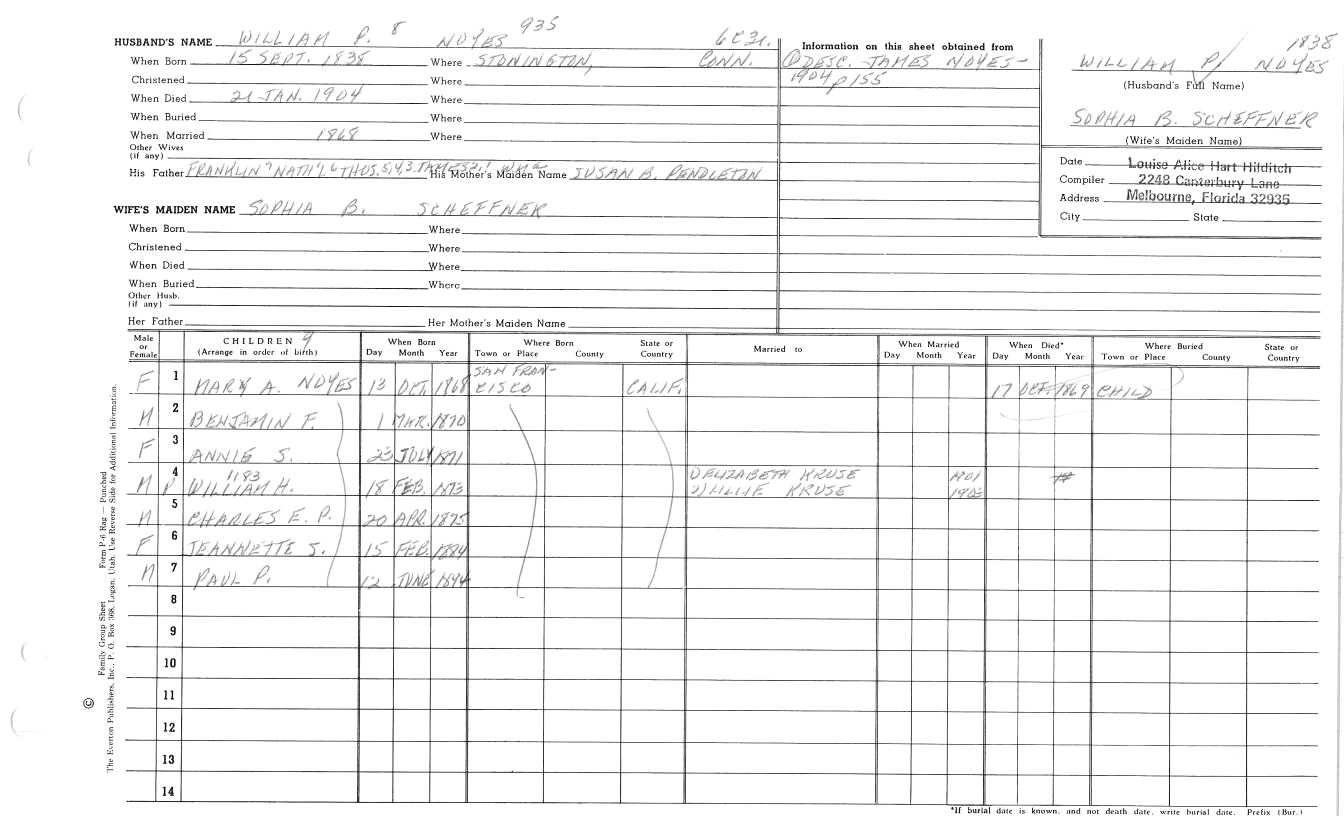 HUSBAND'S NAME WILLIAM P. 8 NOYES 935
When Born 15 SEPT. 1838 Where STONINGTON, CONN.
Christened Where
When Died 21 JAN. 1904 Where
When Buried Where
When Married 1868 Where
Other Wives
(if any)
His Father FRANKLIN 7 NATH'L 6 THOS. 5,4,3 JAMES 2, His Mother's Maiden Name SUSAN B. PENDLETON
WIFE'S MAIDEN NAME SOPHIA B. SCHEFFNER
When Born Where
Christened Where
When Died Where
When Buried Where
Other Husb.
(if any)
Her Father Her Mother's Maiden Name
Information on this sheet obtained from
① DESC. JAMES NOYES-
1904 p155
1838
WILLIAM P. NOYES
(Husband's Full Name)
SOPHIA B. SCHEFFNER
(Wife's Maiden Name)
Date Louise Alice Hart Hilditch
Compiler 2248 Canterbury Lane
Address Melbourne, Florida 32935
City State
Male or Female
CHILDREN
(Arrange in order of birth)
When Born
Day Month Year
Where Born
Town or Place County
State or Country
Married to
When Married
Day Month Year
When Died*
Day Month Year
Where Buried
Town or Place County
State or Country
F 1 MARY A. NOYES 13 OCT. 1868 SAN FRANCISCO CALIF. 17 OCT. 1869 CHILD
M 2 BENJAMIN F. 1 MAR. 1870
F 3 ANNIE S. 23 JULY 1871
1183
M P 4 WILLIAM H. 18 FEB. 1873 1) ELIZABETH KRUSE 1901
2) LILLIE KRUSE 1903
M 5 CHARLES E. P. 20 APR. 1875
F 6 JEANNETTE S. 15 FEB.
M 7 PAUL P. 12 JUNE
8
9
10
11
12
13
14
*If burial date is known, and not death date, write burial date. Prefix (Bur.)
© Family Group Sheet Form P-6 Rag — Punched
The Everton Publishers, Inc., P. O. Box 368, Logan, Utah. Use Reverse Side for Additional Information.